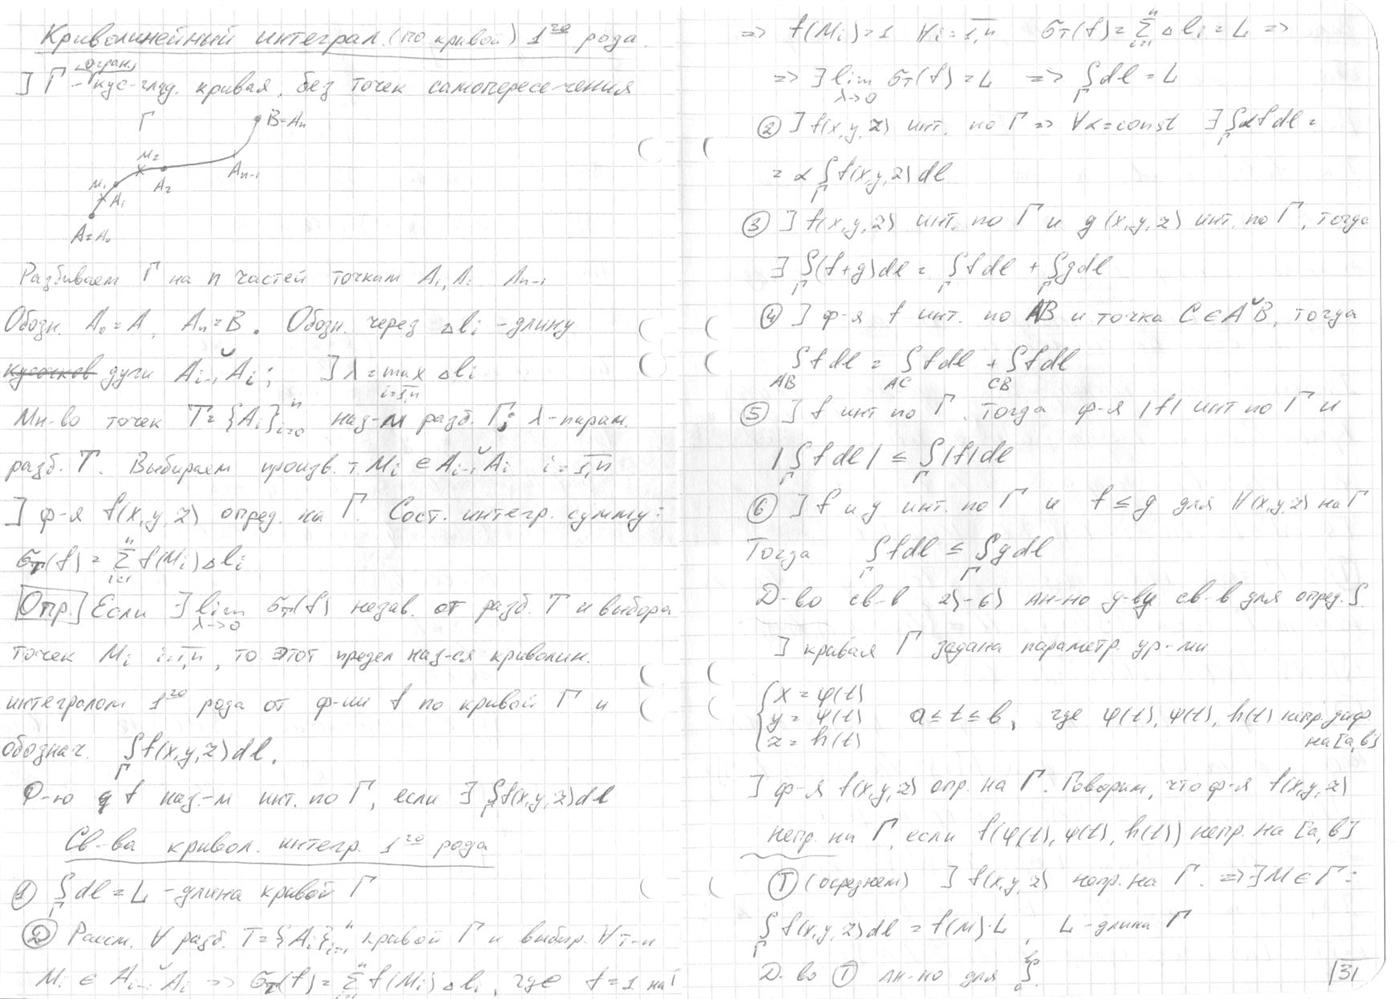 Криволинейный интеграл (по кривой) 1го рода.
огранич.
] Г - кус-глад. кривая, без точек самопересечения
Г
B=An
M2
An-1
M1
A2
A1
A=A0
Разбиваем Г на n частей точками A1, A2 An-1
Обозн. A0=A, An=B. Обозн. через Δli - длину
кусочков дуги Ai-1Ai; ] λ = max Δli
i=1,n
Мн-во точек T={Ai}ni=0 наз-м разб. Г; λ-парам.
разб. T. Выбираем произв. т Mi ∈ Ai-1Ai i=1,n
] ф-я f(x,y,z) опред. на Г. Сост. интегр. сумму:
σT(f) = Σ f(Mi) Δli
Опр. Если ∃ lim σT(f) независ. от разб. T и выбора
λ→0
точек Mi i=1,n, то этот предел наз-ся криволин.
интегралом 1го рода от ф-ии f по кривой Г и
обознач. ∫Г f(x,y,z)dl.
Ф-ю f наз-м инт. по Г, если ∃ ∫Г f(x,y,z)dl
Св-ва кривол. интегр. 1го рода
① ∫Г dl = L - длина кривой Г
Д Рассм. ∀ разб. T={Ai}ni=1 кривой Г и выбир. ∀ т-и
Mi ∈ Ai-1Ai => σT(f) = Σ f(Mi) Δli, где f=1 на Г
=> f(Mi)=1 ∀i=1,n σT(f) = Σ Δli = L =>
=> ∃ lim σT(f) = L => ∫Г dl = L
λ→0
② ] f(x,y,z) инт. по Г => ∀α=const ∃ ∫Г αf dl =
= α ∫Г f(x,y,z) dl
③ ] f(x,y,z) инт. по Г и g(x,y,z) инт. по Г, тогда
∃ ∫Г (f+g)dl = ∫Г f dl + ∫Г g dl
④ ] ф-я f инт. по AB и точка C ∈ AB, тогда
∫AB f dl = ∫AC f dl + ∫CB f dl
⑤ ] f инт по Г. Тогда ф-я |f| инт по Г и
|∫Г f dl| ≤ ∫Г |f| dl
⑥ ] f и g инт. по Г и f ≤ g для ∀(x,y,z) на Г
Тогда ∫Г f dl ≤ ∫Г g dl
Д-во св-в 2)-6) ан-но д-ву св-в для опред. ∫.
] кривая Г задана параметр. ур-ми
{ x = φ(t)
y = ψ(t) a ≤ t ≤ b, где φ(t), ψ(t), h(t) непр. диф
z = h(t) на [a,b]
] ф-я f(x,y,z) опр. на Г. Говорим, что ф-я f(x,y,z)
непр. на Г, если f(φ(t), ψ(t), h(t)) непр. на [a,b]
Т (о среднем) ] f(x,y,z) непр. на Г. => ∃ M ∈ Г:
∫Г f(x,y,z) dl = f(M)·L, L - длина Г
Д-во Т ан-но для ∫ab.
31